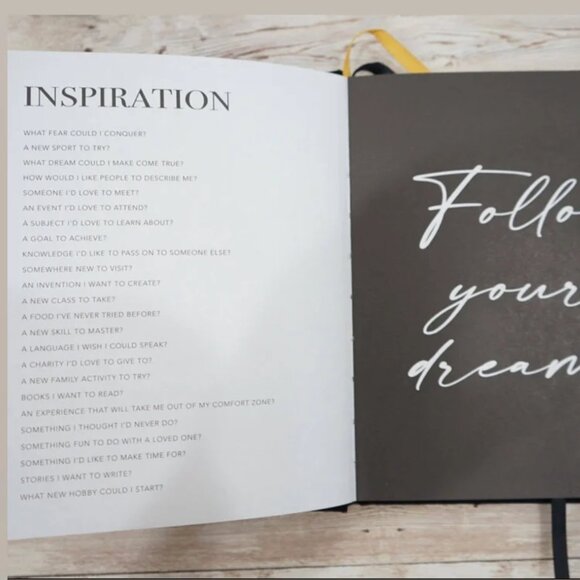 INSPIRATION
WHAT FEAR COULD I CONQUER?
A NEW SPORT TO TRY?
WHAT DREAM COULD I MAKE COME TRUE?
HOW WOULD I LIKE PEOPLE TO DESCRIBE ME?
SOMEONE I'D LOVE TO MEET?
AN EVENT I'D LOVE TO ATTEND?
A SUBJECT I'D LOVE TO LEARN ABOUT?
A GOAL TO ACHIEVE?
KNOWLEDGE I'D LIKE TO PASS ON TO SOMEONE ELSE?
SOMEWHERE NEW TO VISIT?
AN INVENTION I WANT TO CREATE?
A NEW CLASS TO TAKE?
A FOOD I'VE NEVER TRIED BEFORE?
A NEW SKILL TO MASTER?
A LANGUAGE I WISH I COULD SPEAK?
A CHARITY I'D LOVE TO GIVE TO?
A NEW FAMILY ACTIVITY TO TRY?
BOOKS I WANT TO READ?
AN EXPERIENCE THAT WILL TAKE ME OUT OF MY COMFORT ZONE?
SOMETHING I THOUGHT I'D NEVER DO?
SOMETHING FUN TO DO WITH A LOVED ONE?
SOMETHING I'D LIKE TO MAKE TIME FOR?
STORIES I WANT TO WRITE?
WHAT NEW HOBBY COULD I START?
Follo
your
dream